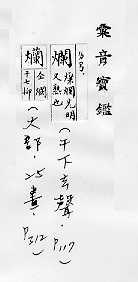 彙音寶鑑
爛 燦爛光明
又熟也
(干下去聲, P.117)
仝爛
(火部·25畫· P.312)